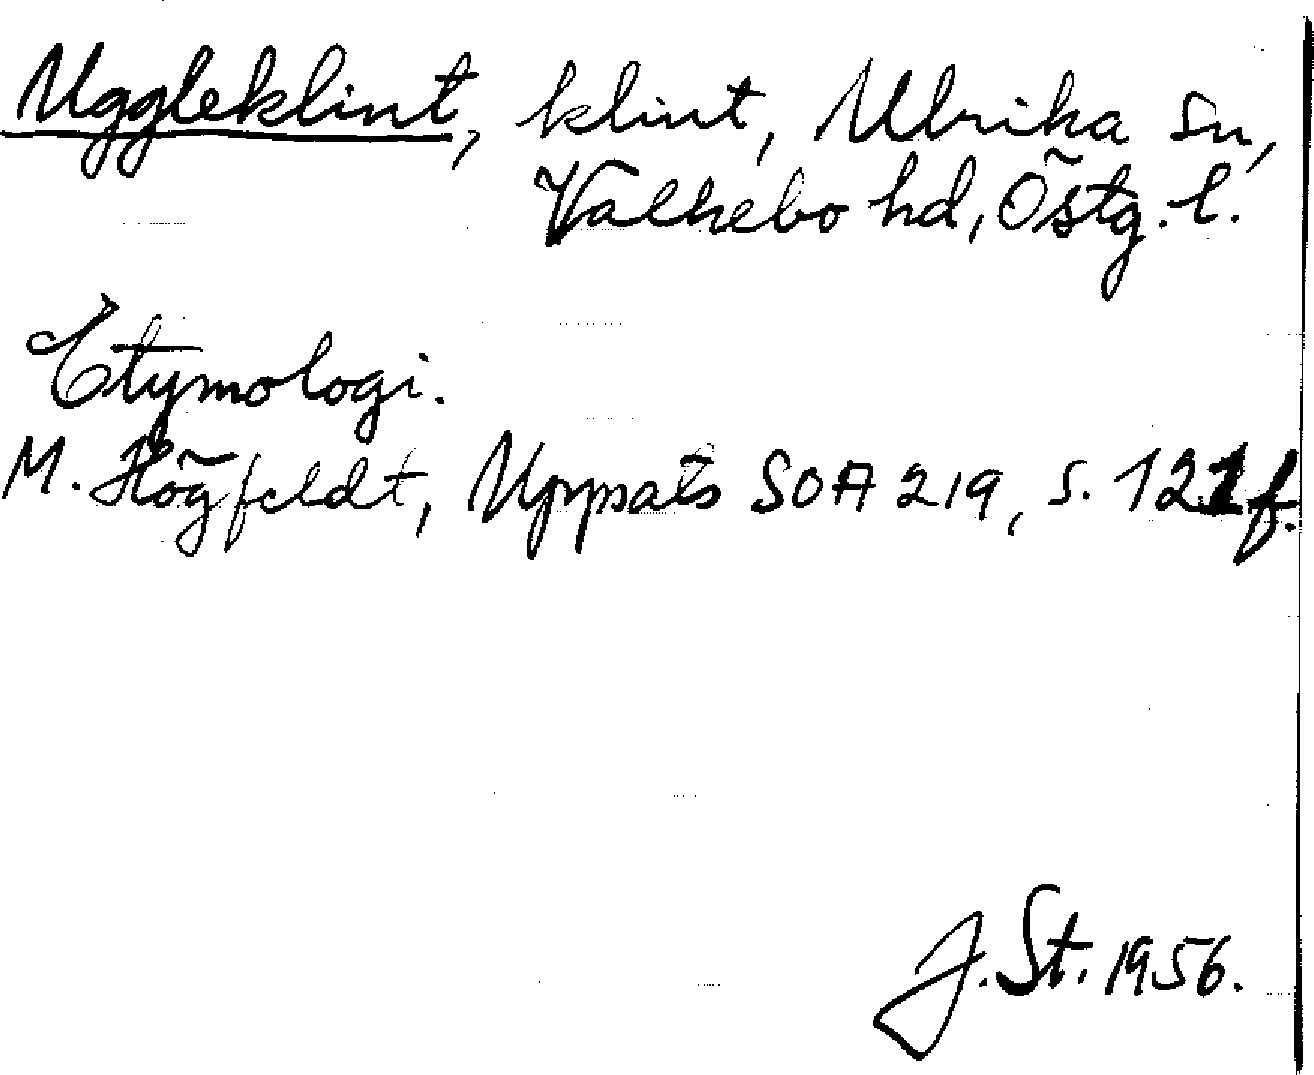 Uggleklint, klint, Ulrika sn,
Valkebo hd, Östg. l.
Etymologi.
M. Högfeldt, Uppsats SOA 219, s. 121 f.
J. St. 1956.